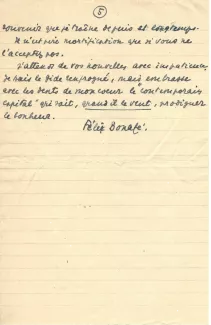 5
souvenir que je traîne depuis si longtemps.
Je n'ai pire mortification que si vous ne
l'acceptez pas.
J'attends de vos nouvelles avec impatience,
Je hais le Gide renfrogné, mais embrasse
avec les dents de mon cœur le contemporain
capital" qui sait, quand il veut, prodiguer
le bonheur.
Félix Bonafé.